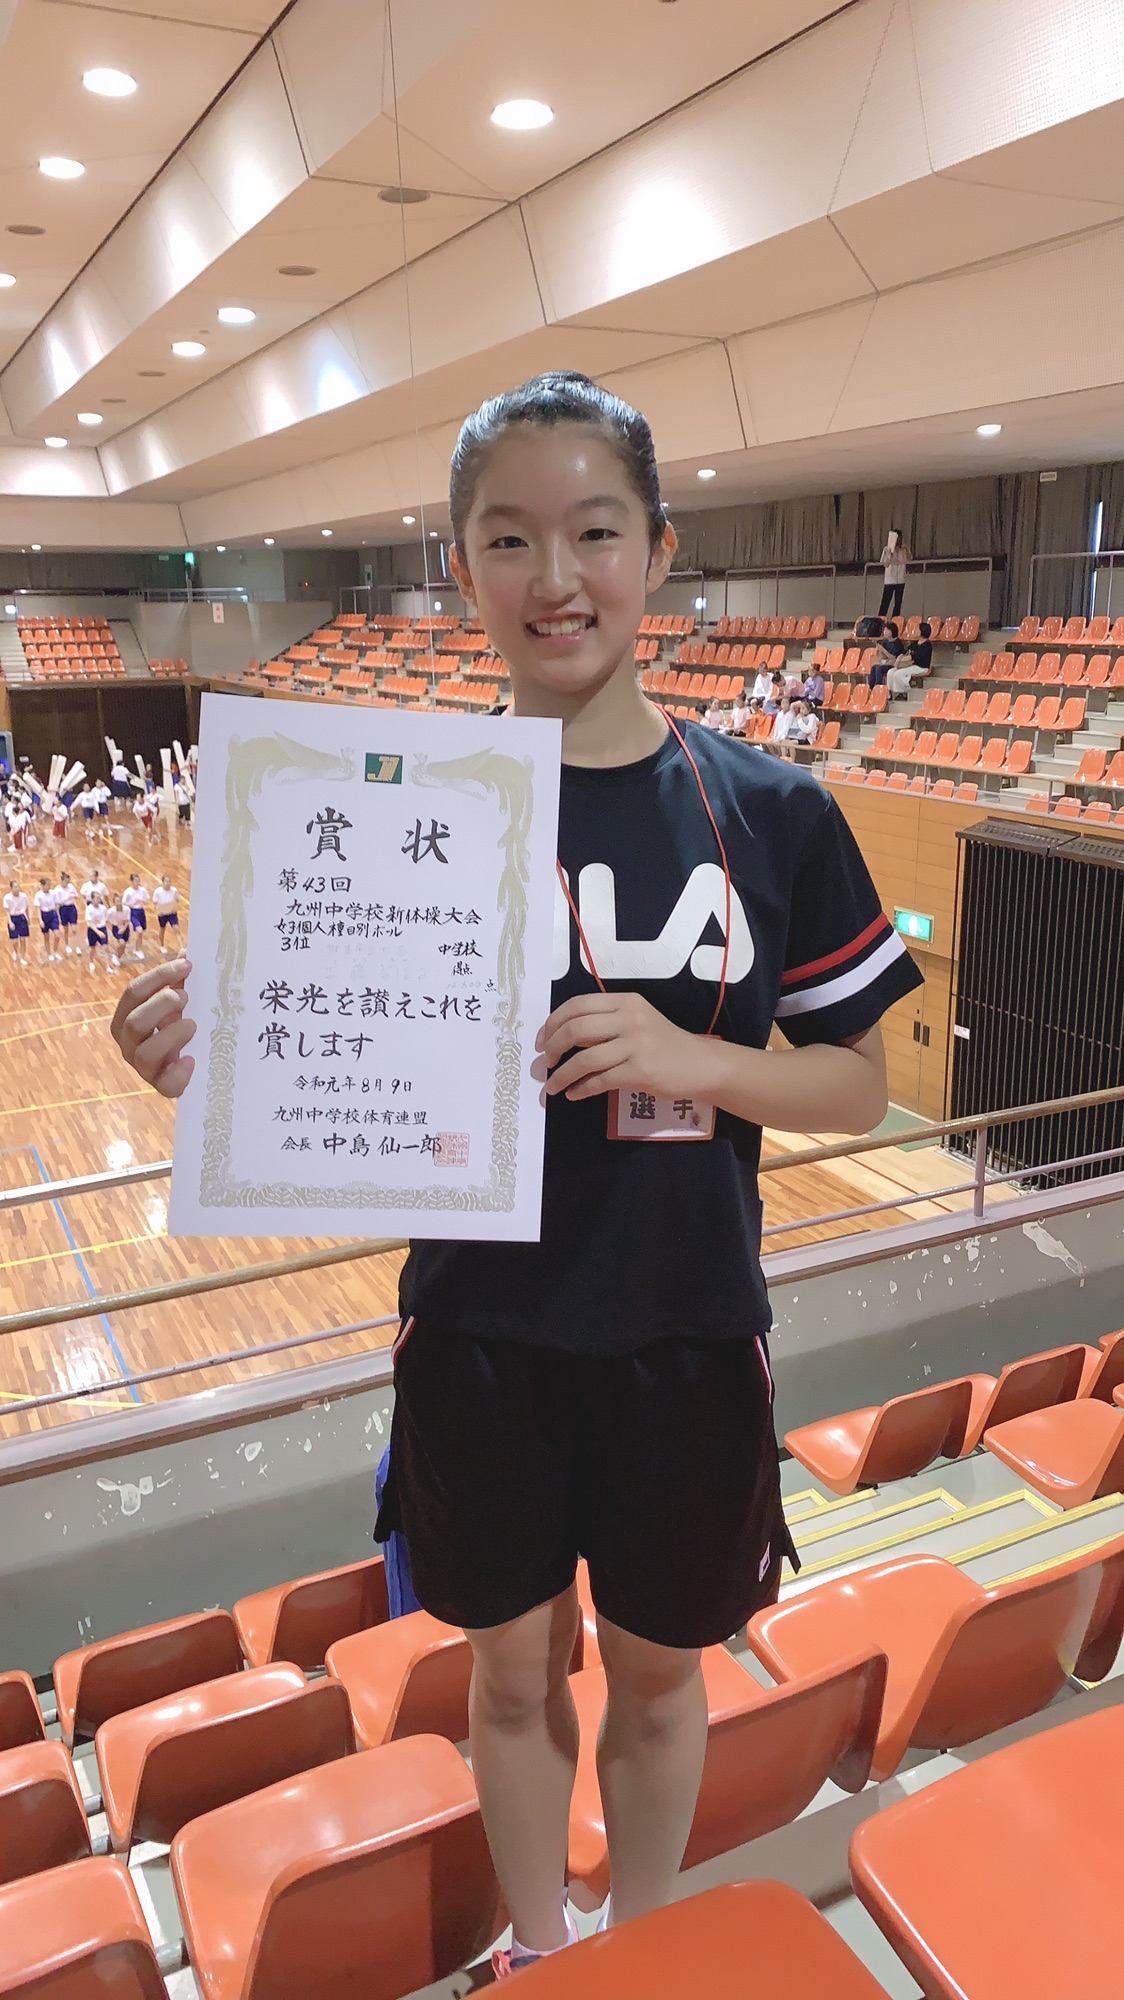 賞状
第43回
九州中学校新体操大会
女子個人種目別ボール
3位
中学校
得点
点
栄光を讃えこれを
賞します
令和元年8月9日
九州中学校体育連盟
会長 中島 仙一郎
ILA
選手